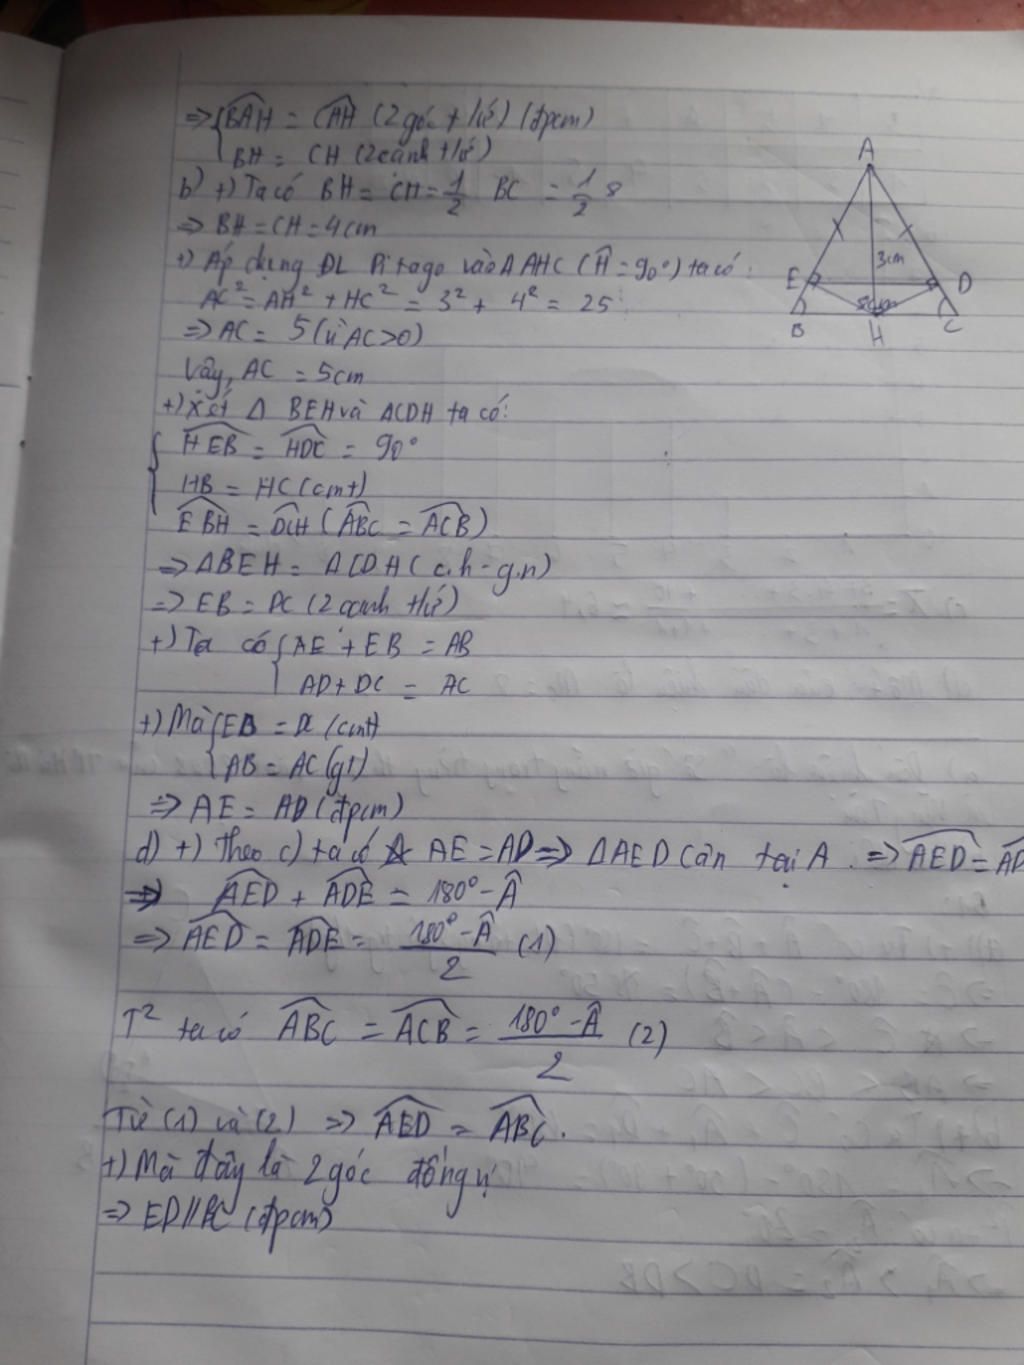 ⇒ { BAH = CAH (2 góc t/ứ) (đpcm)
BH = CH (2 cạnh t/ứ)
b) +) Ta có BH = CH = 1/2 BC = 1/2 8
⇒ BH = CH = 4cm
+) Áp dụng ĐL Pitago vào Δ AHC (Ĥ = 90°) ta có:
AC² = AH² + HC² = 3² + 4² = 25
⇒ AC = 5 (vì AC>0)
Vậy, AC = 5cm
+) Xét Δ BEH và ΔCDH ta có:
{ HEB = HDC = 90°
HB = HC (cmt)
EBH = DCH (ABC = ACB)
⇒ ΔBEH = ΔCDH (c.h - g.n)
⇒ EB = DC (2 cạnh t/ứ)
+) Ta có { AE + EB = AB
AD + DC = AC
+) Mà { EB = DC (cmt)
AB = AC (gt)
⇒ AE = AD (đpcm)
d) +) Theo c) ta có AE = AD ⇒ ΔAED cân tại A. ⇒ AED = AD
⇒ AED + ADE = 180° - Â
⇒ AED = ADE = (180° - Â)/2 (1)
T² ta có ABC = ACB = (180° - Â)/2 (2)
Từ (1) và (2) ⇒ AED = ABC.
+) Mà đây là 2 góc đồng vị
⇒ ED // BC (đpcm)
A
3cm
E
D
8cm
B
H
C